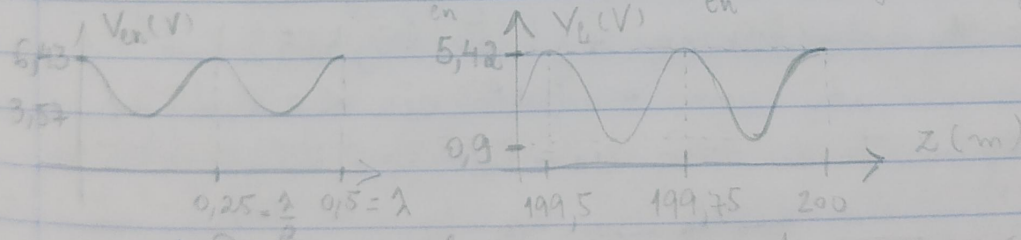 V_en (V)
6,43
3,57
0,25 = λ/2
0,5 = λ
en
V_L (V)
en
5,42
0,9
Z (m)
199,5
199,75
200